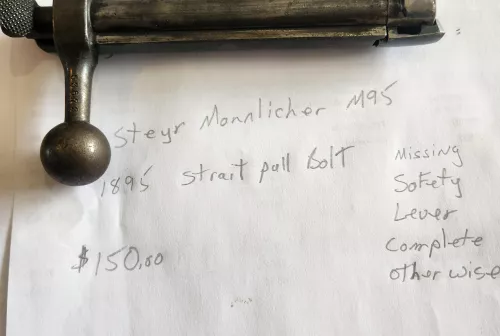 Steyr Mannlicher M95
1895 strait pull Bolt
Missing
Safety
Lever
Complete
otherwise
$150.00